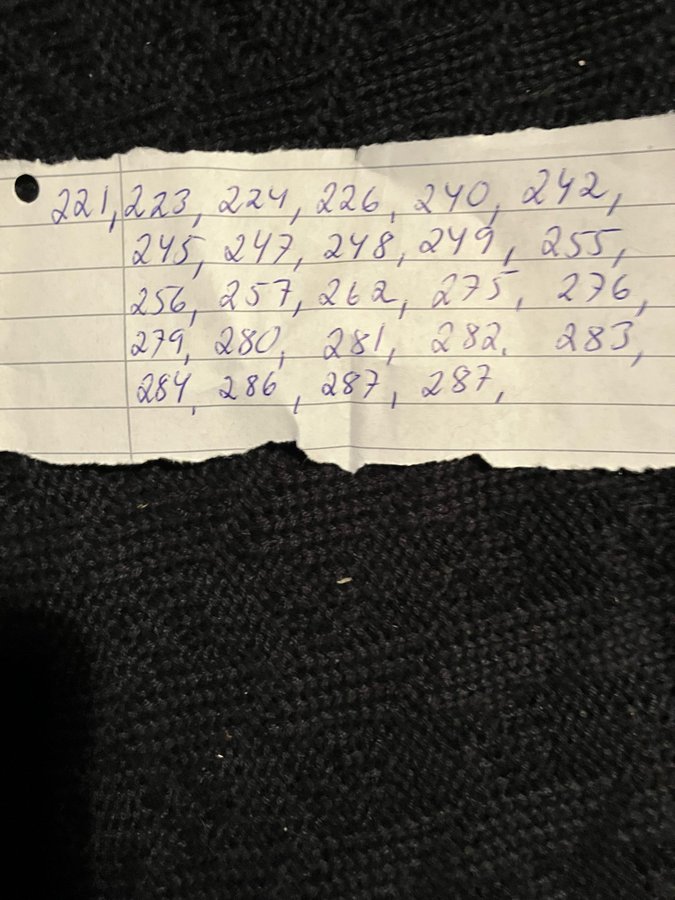 221, 223, 224, 226, 240, 242,
245, 247, 248, 249, 255,
256, 257, 262, 275, 276,
279, 280, 281, 282. 283,
284, 286, 287, 287,